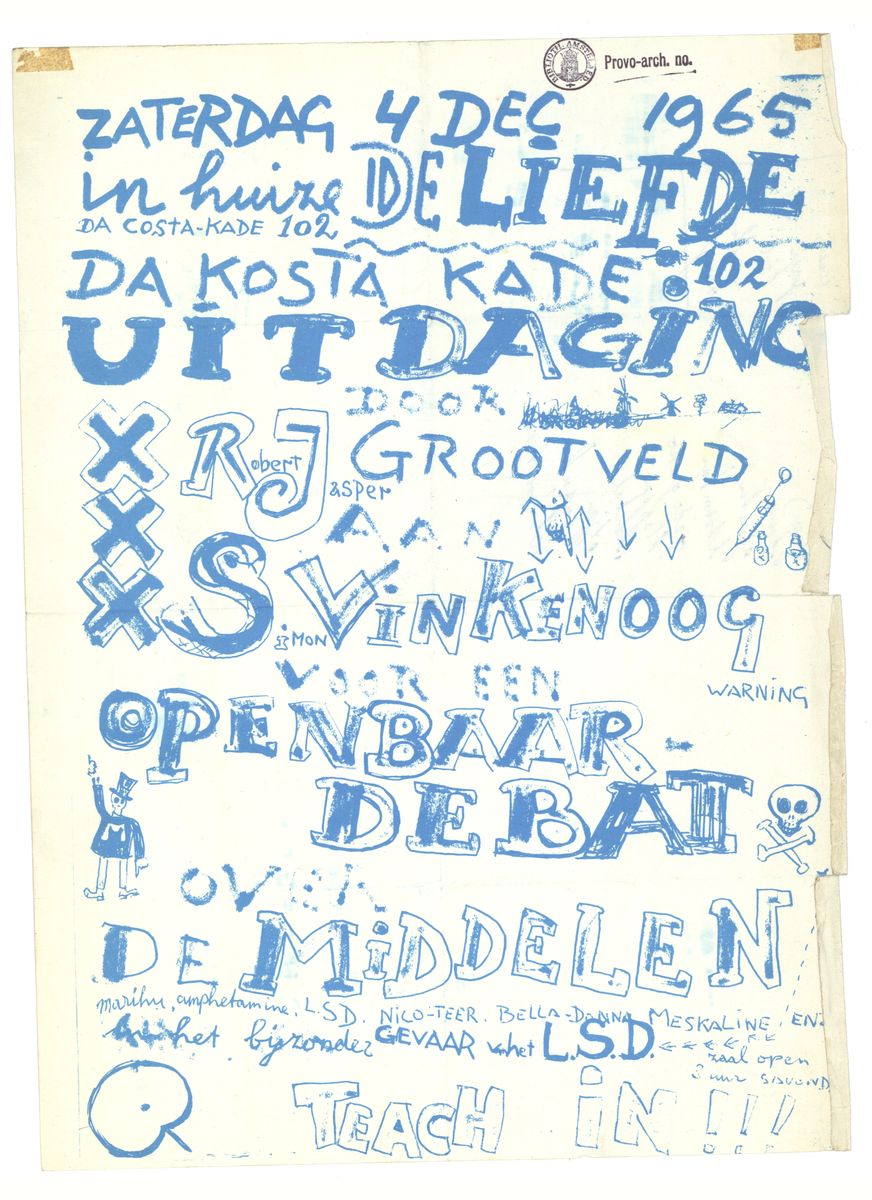 BIBLIOTH. AMSTELAED.
Provo-arch. no.
ZATERDAG 4 DEC 1965
in huize DE LiEFDE
DA COSTA-KADE 102
DA KOSTA KADE 102
UITDAGiNG
DOOR
XXX
Robert Jasper GROOTVELD
AAN
Simon VINKENOOG
WARNING
VOOR EEN
OPENBAAR-
DEBAT
OVER
DE MiDDELEN
marihu, amphetamine, L.S.D. NICO-TEER. BELLA-DONNA MESKALINE, EN.
het bijzonder GEVAAR v. het L.S.D.
zaal open
8 uur s'avond
TEACH iN !!!